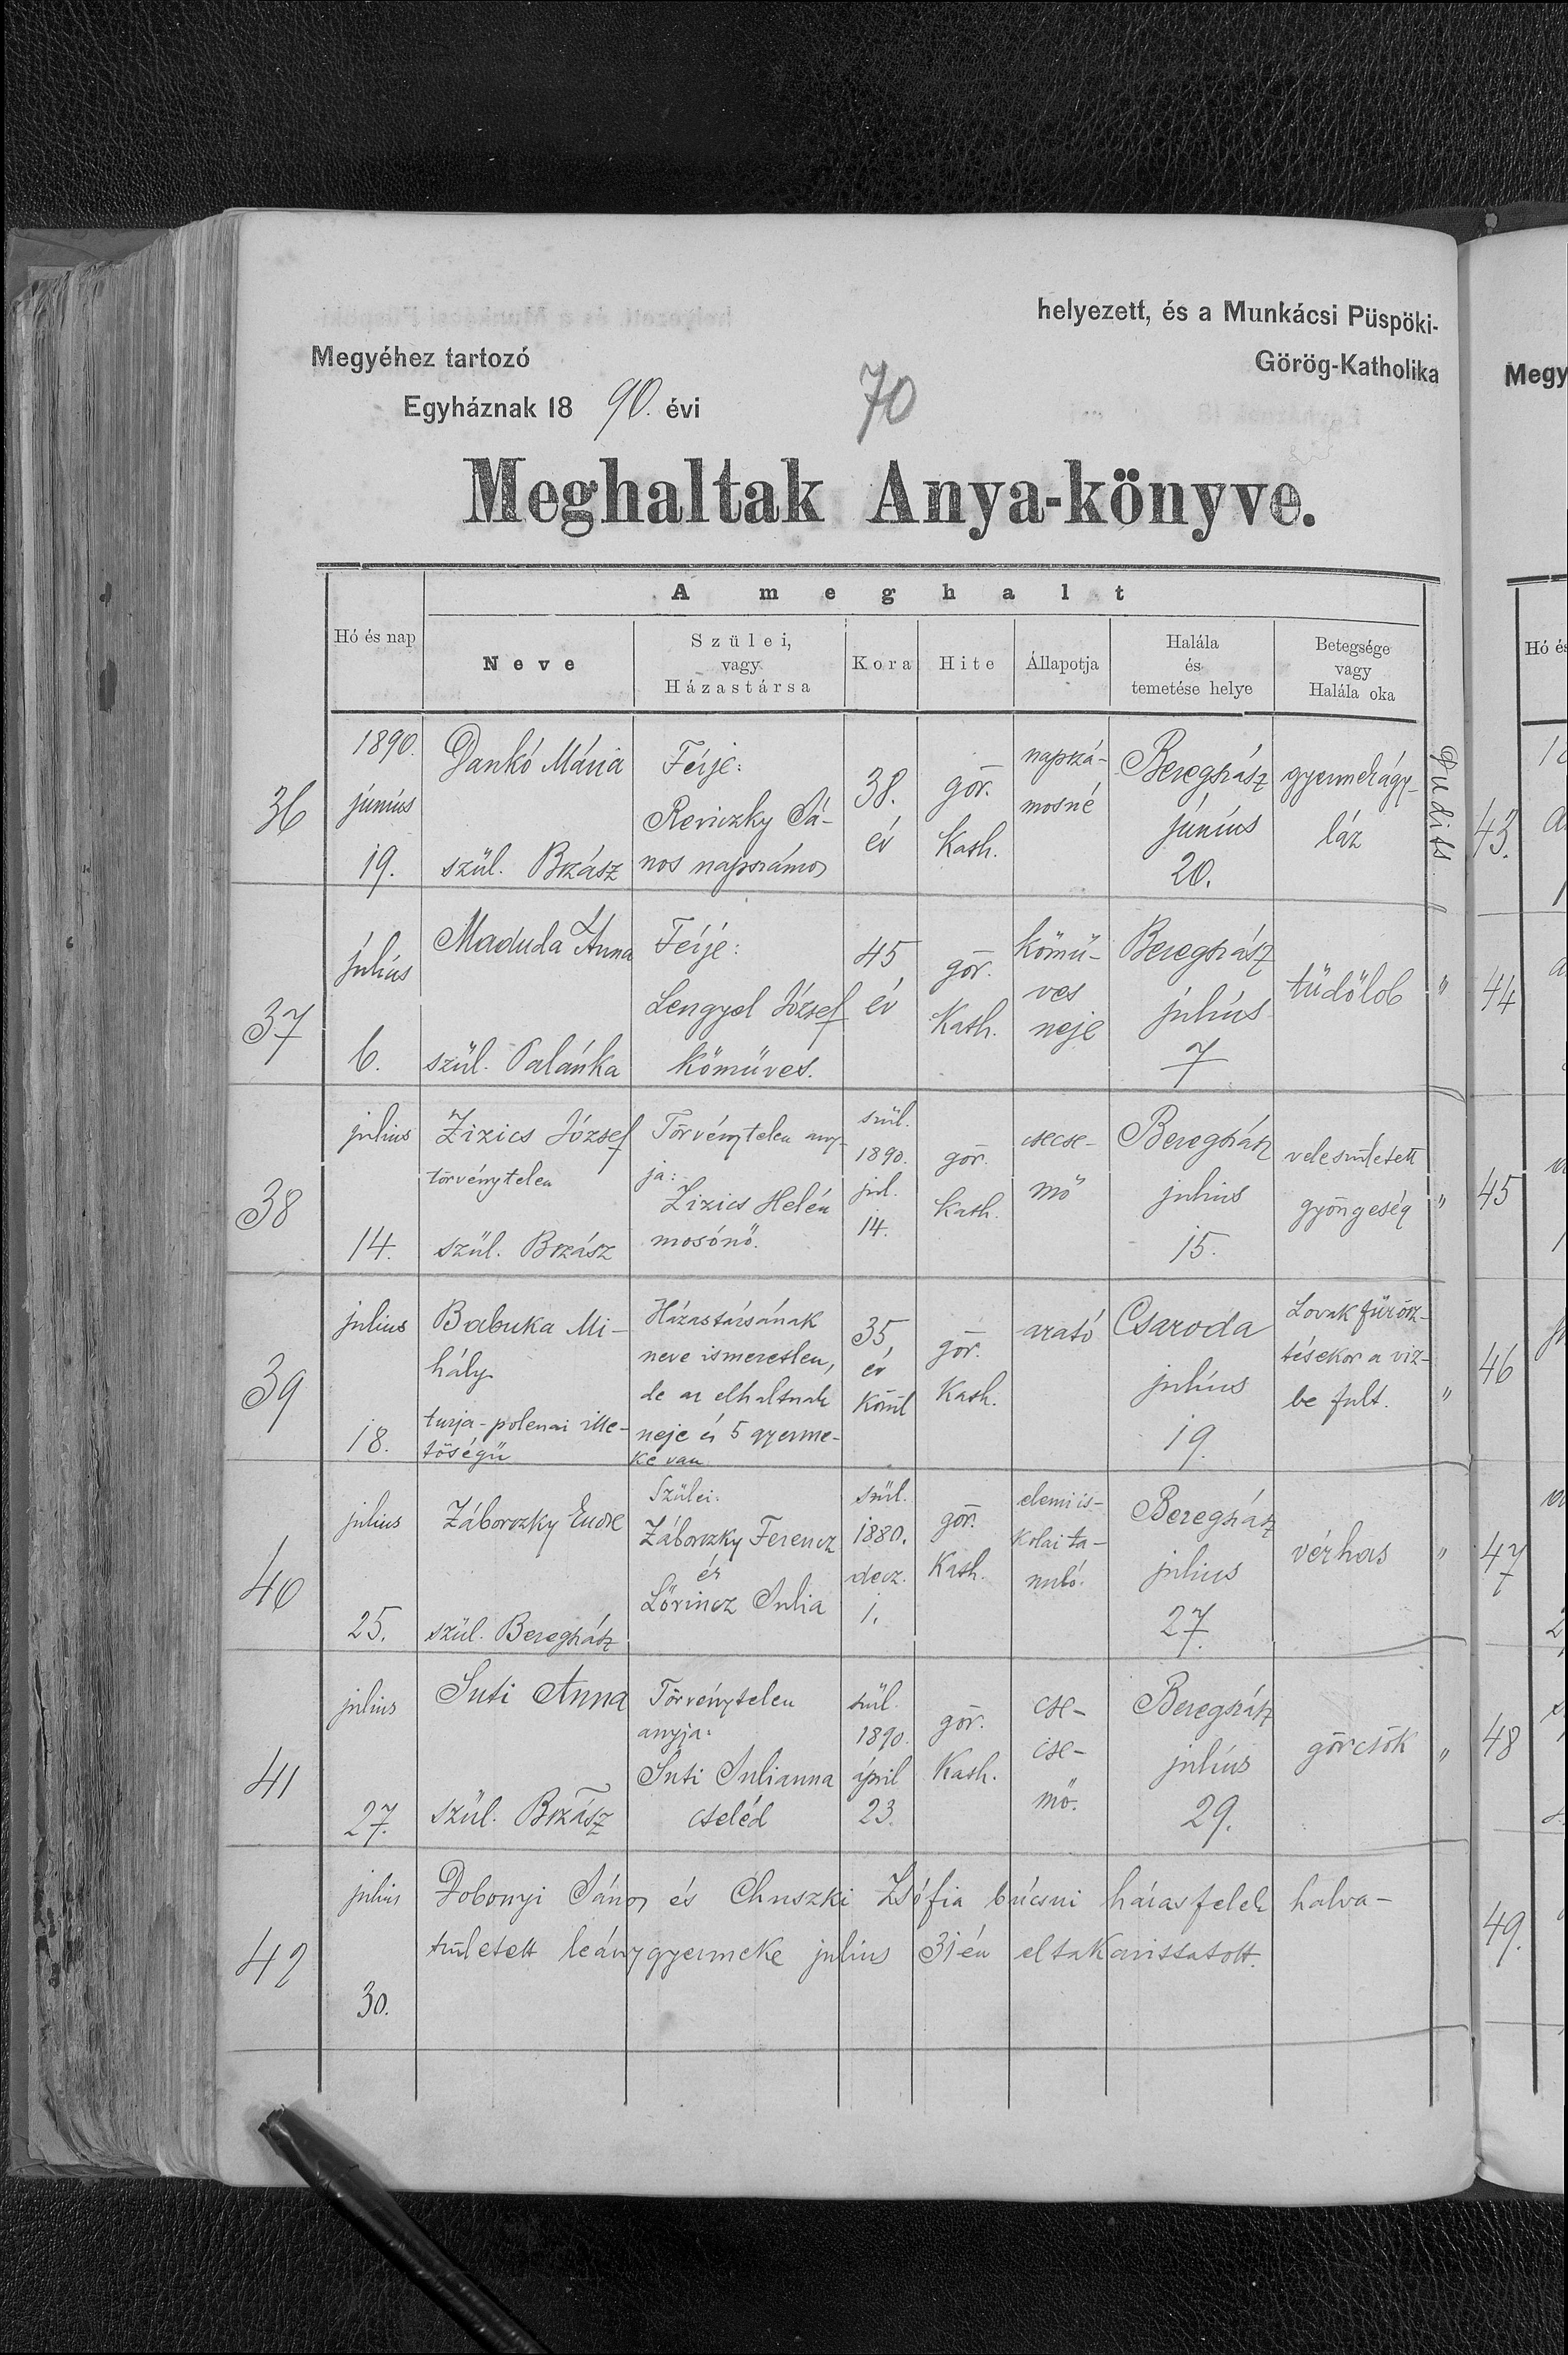 helyezett, és a Munkácsi Püspöki-
Megyéhez tartozó
Görög-Katholika
Egyháznak 18 90. évi
70
Meghaltak Anya-könyve.
A meghalt
Hó és nap
Neve
Szülei,
vagy
Házastársa
Kora
Hite
Állapotja
Halála
és
temetése helye
Betegsége
vagy
Halála oka
36
1890.
június
19.
Dankó Mária
szül. Brzász
Férje:
Reviczky Já-
nos napszámos
38.
év
gör.
Kath.
napszá-
mosné
Beregszász
június
20.
gyermekágy-
láz
Dudits
37
július
6.
Maduda Anna
szül. Palánka
Férje:
Lengyel József
kömüves.
45
év
gör.
Kath.
kömü-
ves
neje
Beregszász
július
7
tüdőlob
"
38
julius
14.
Zizics József
törvénytelen
szül. Brzász
Törvénytelen any-
ja:
Zizics Helén
mosónő.
szül.
1890.
jul.
14.
gör.
Kath.
csecse-
mő
Beregszász
julius
15.
veleszületett
gyöngeség
"
39
julius
18.
Babuka Mi-
hály
turja-polenai ille-
tőségü
Házastársának
neve ismeretlen,
de az elhaltnak
neje és 5 gyerme-
ke van
35,
év
körül
gör.
Kath.
arató
Csaroda
július
19.
Lovak fürösz-
tésekor a viz-
be fult.
"
40
julius
25.
Záborszky Endre
szül. Beregszász
Szülei:
Záborszky Ferencz
és
Lőrincz Julia
szül.
1880.
decz.
1.
gör.
Kath.
elemi is-
kolai ta-
nuló.
Beregszász
julius
27.
vérhas
"
41
július
27.
Suti Anna
szül. Brzász
Törvénytelen
anyja:
Suti Julianna
cseléd
szül.
1890.
ápril
23.
gör.
Kath.
cse-
cse-
mő.
Beregszász
július
29.
görcsök
"
42
julius
30.
Dobonyi János és Chuszki Zsófia búcsui házasfelek halva-
született leánygyermeke julius 31én eltakaríttatott.
Megy
Hó és
43.
44
45
46
47
48
49.